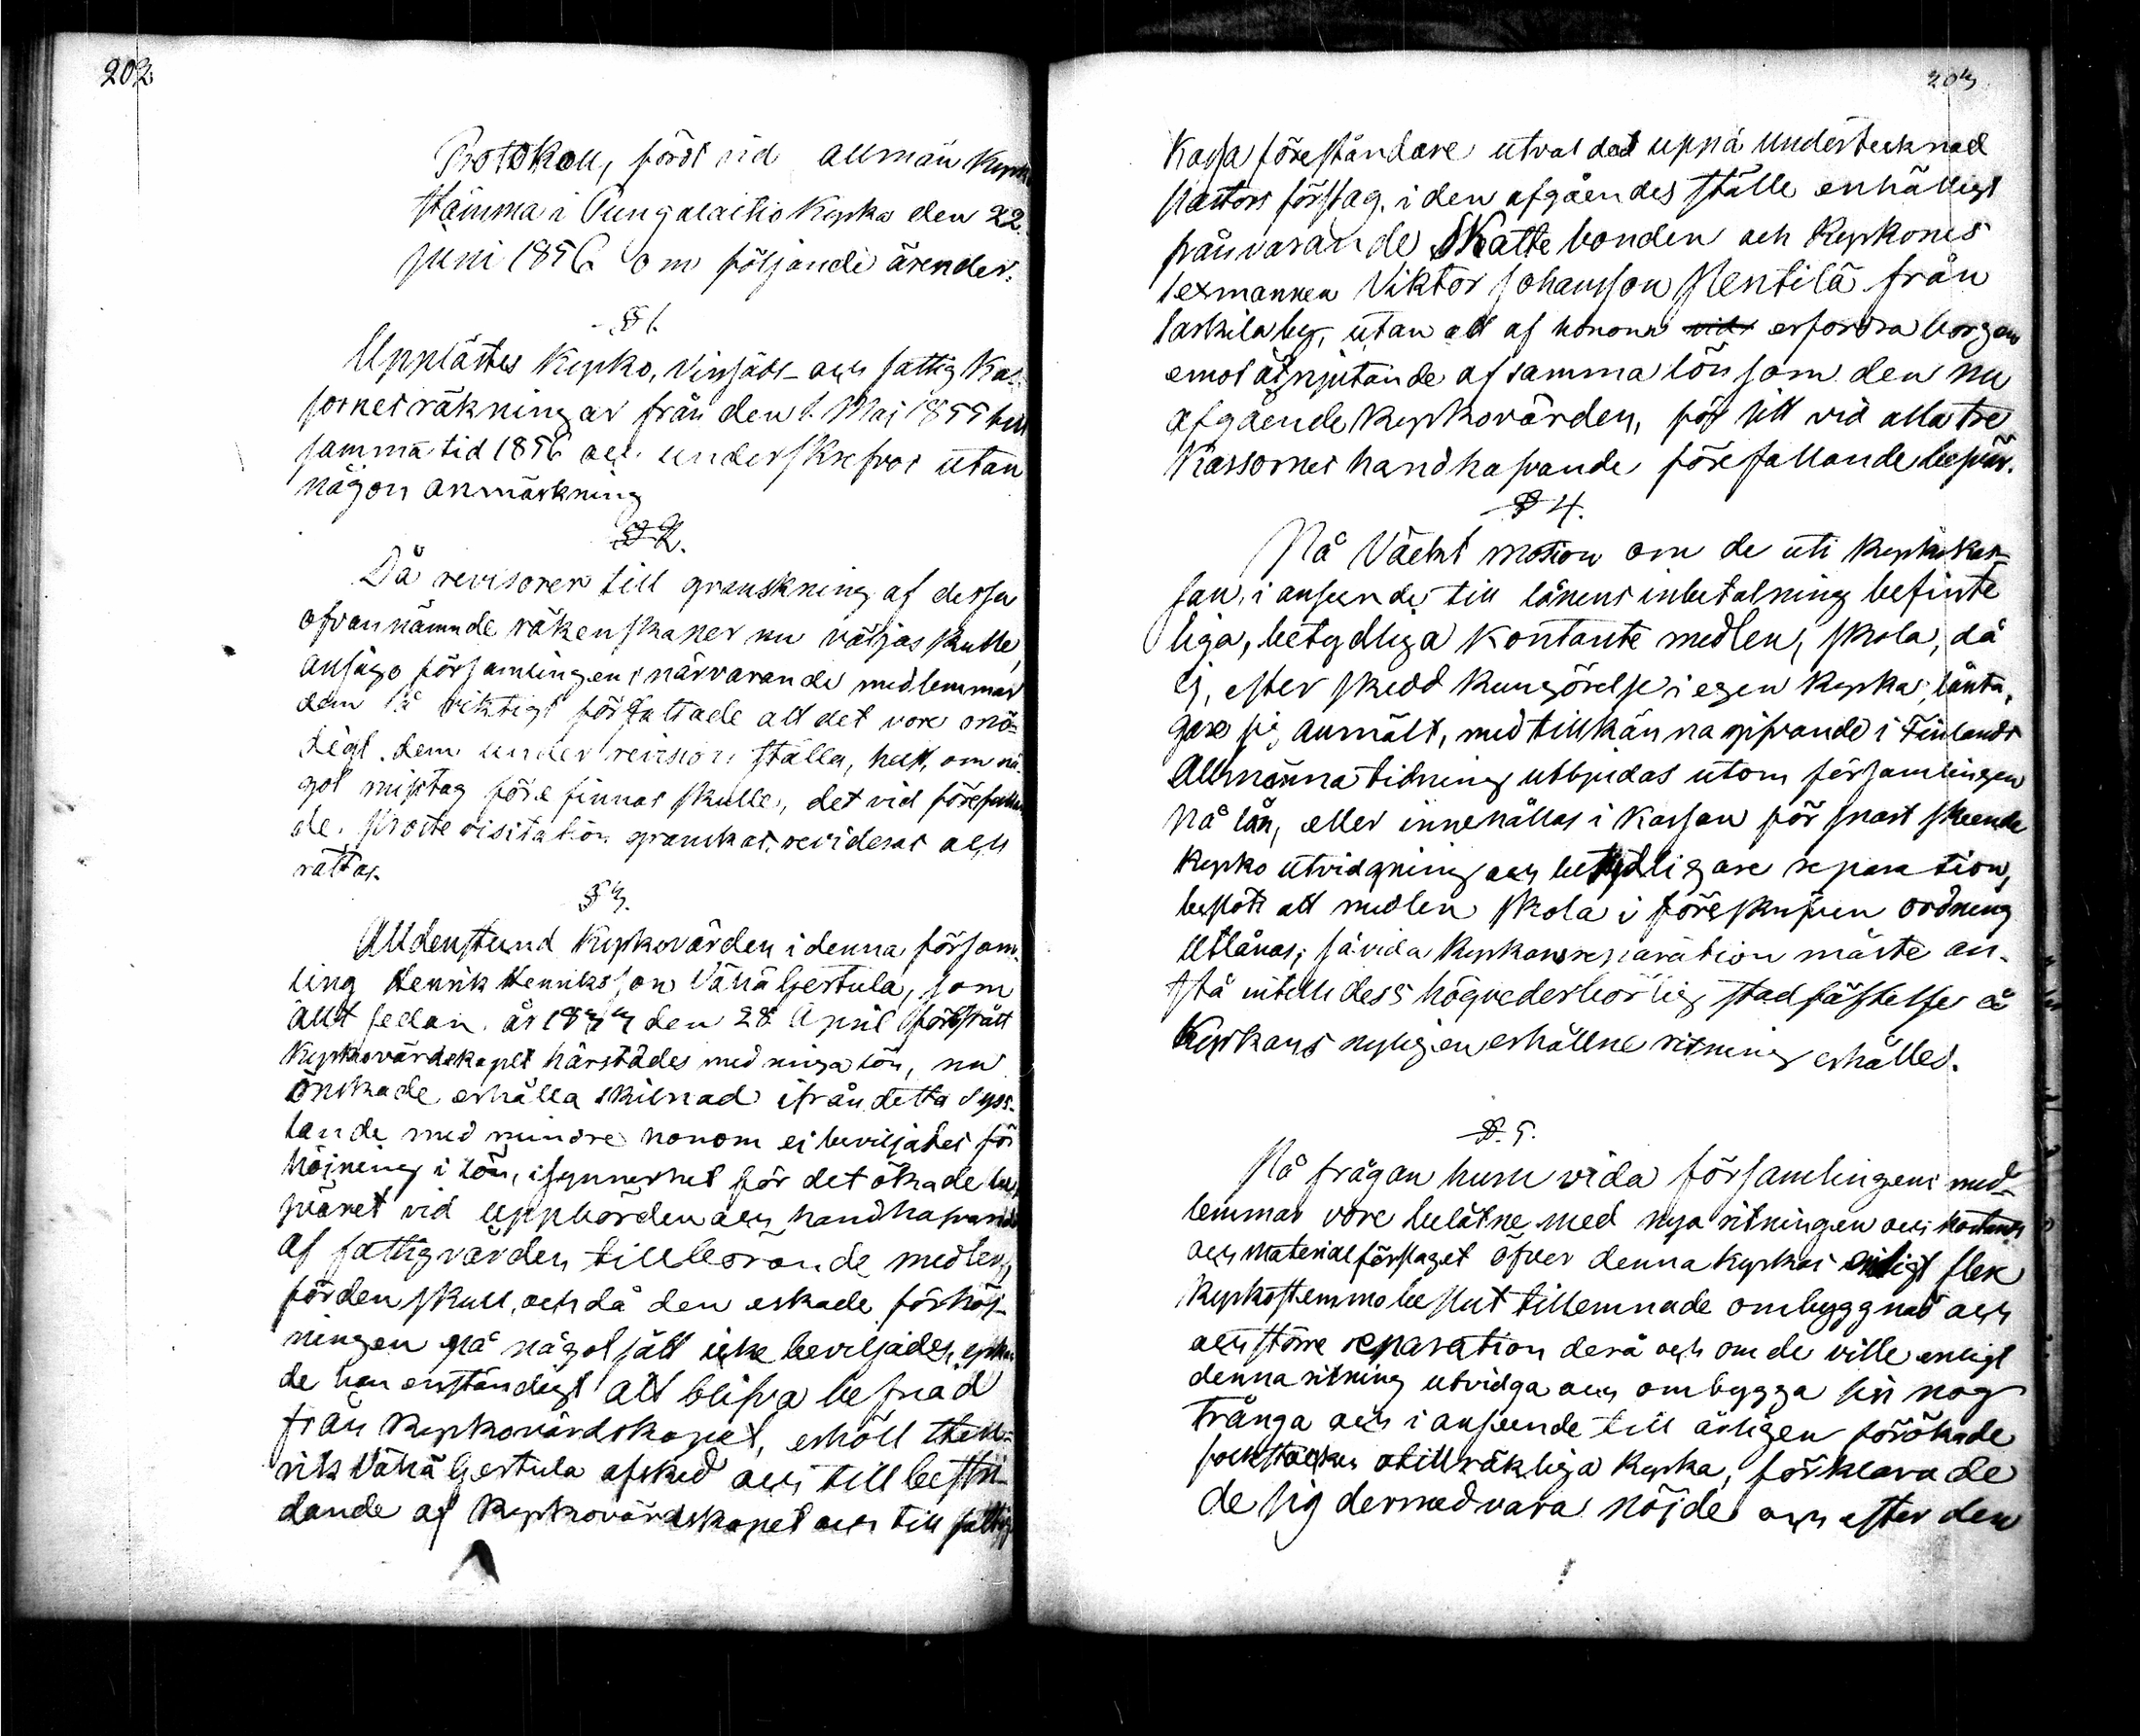 202.
Protokoll, fördt vid allmän Kyrko
stämma i Pungalaitio Kyrka den 22.
Juni 1856 om följande ärender.
§ 1.
Upplästes Kyrko, Vinsädes- och fattig Kas-
sornes räkningar från den 1. Maj 1855 till
samma tid 1856 och underskrefvos utan
någon anmärkning
§ 2.
Då revisorer till granskning af dessa
ofvannämnde räkenskaper nu väljas skulle,
ansågo församlingens närvarande medlemmar
dem så riktigt författade att det vore onö-
digt dem under revision ställa, helst, om nå-
got misstag förefinnas skulle, det vid förefallan
de Proste visitation granskas, revideras och
rättas.
§ 3.
Alldenstund Kyrkovärden i denna försam-
ling Henrik Henriksson Vähä Gertula, som
allt sedan år 1833 den 28 April förestått
Kyrkovärdskapet härstädes med ringa lön, nu
önskade erhålla skilnad ifrån detta syss-
lande med mindre honom ej beviljades för
höjning i lön, isynnerhet för det ökade be
sväret vid uppbörden och handhafvande
af fattigvården tillhörande medlen,
förden skull, och då den äskade förhöj-
ningen på något sätt icke beviljades, yrkan
de han enständigt att blifva befriad
från Kyrkovärdskapet, erhöll Hen-
rik Vähä Gertula afsked och till bestri-
dande af Kyrkovärdskapet och till fattig
203
Kassa föreståndare utvaldes uppå undertecknad
Pastors förslag, i den afgåendes ställe enhälligt
frånvarande Skattebonden och Kyrkones
sexmannen Viktor Johansson Pentilä från
Sarkila by, utan att af honom vid erfordra borgen
emot åtnjutande af samma lön som den nu
afgående Kyrkovärden, för sitt vid alla tre
Kassornes handhafvande förefallande besvär.
§ 4.
På väckt motion om de uti Kyrkokas-
san, i anseende till lånens inbetalning befinte
liga, betydliga Kontante medlen, skola, då
ej, efter skedd kungörelse i egen Kyrka, lånta-
gare sig anmält, med tillkännagifvande i Finlands
Allmänna tidning utbjudas utom församlingen
på lån, eller innehållas i Kassan för snart skeende
Kyrko utvidgning och betydligare reparation,
beslöts att medlen skola i föreskrifven ordning
utlånas; såvida Kyrkans reparation måste an-
stå intill dess högvederbörlig stadfästelse å
Kyrkans nyligen erhållne ritning erhålles.
§. 5.
På frågan huru vida församlingens med-
lemmar vore belåtne med nya ritningen och kostnads
och Materialförslaget öfver denna Kyrkas enligt flere
Kyrkostemmobeslut tillemnade ombyggnad och
och större reparation derå och om de ville enligt
denna ritning utvidga och ombygga sin nog
trånga och i anseende till årligen förökade
folkstocken otillräkliga Kyrka, förklarade
de sig dermed vara nöjde och efter den